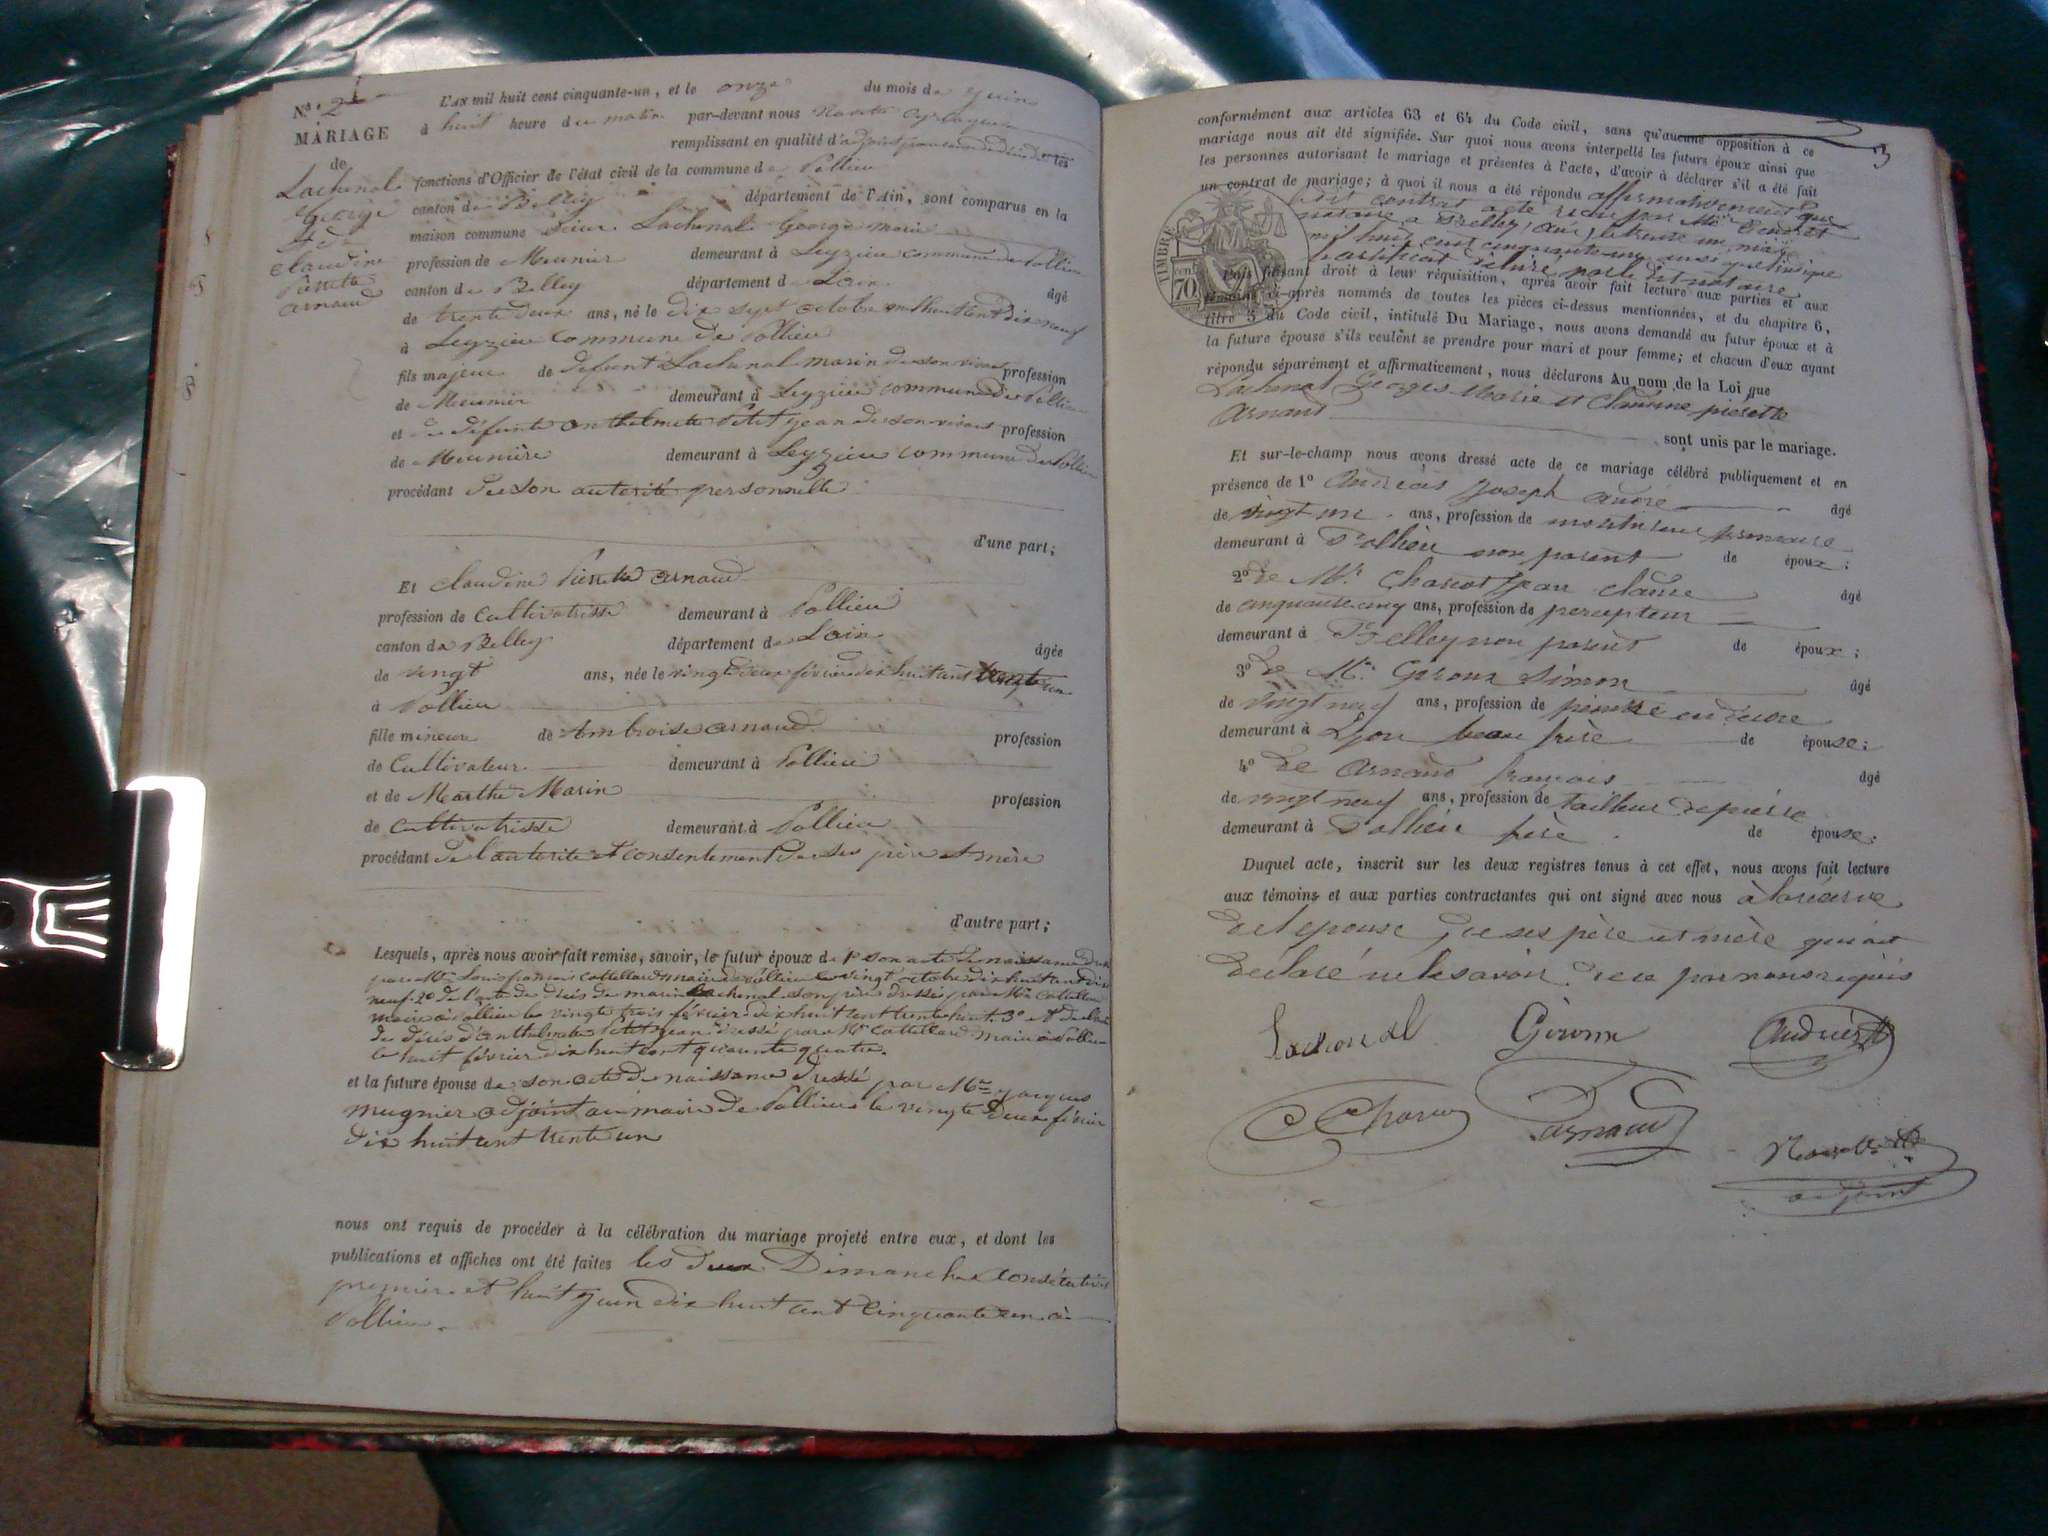 N° 2
MARIAGE
de
Lachenal
George
Et de
Claudine
Pierrette
arnaud
L'AN mil huit cent cinquante-un, et le onze du mois de juin
à huit heure du matin par-devant nous
remplissant en qualité d'adjoint les
fonctions d'Officier de l'état civil de la commune de Pollieu
canton de Belley département de l'Ain, sont comparus en la
maison commune sieur Lachenal George marie
profession de Meunier demeurant à Leyzieu commune de Pollieu
canton de Belley département de Lain âgé
de trente deux ans, né le dix sept octobre mil huit cent dix neuf
à Leyzieu commune de Pollieu
fils majeur de défunt Lachenal marin de son vivant profession
de Meunier demeurant à Leyzieu commune de Pollieu
et de défunte anthelmette Petit jean de son vivant profession
de Meunière demeurant à Leyzieu commune de Pollieu
procédant de son autorité personnelle
d'une part;
Et Claudine Pierrette arnaud
profession de Cultivatrisse demeurant à Pollieu
canton de Belley département de Lain âgée
de vingt ans, née le vingt deux février dix huit cent trente un
à Pollieu
fille mineure de Ambroise arnaud profession
de Cultivateur demeurant à Pollieu
et de Marthe Marin profession
de Cultivatrisse demeurant à Pollieu
procédant de l'autorité et consentement de ses père et mère
d'autre part;
Lesquels, après nous avoir fait remise, savoir, le futur époux de 1° son acte de naissance dressé
par Mr Louis françois Cattelard maire de Pollieu le vingt octobre dix huit cent dix
neuf 2° de l'acte de décès de marin Lachenal son père dressé par Mr Cattelard
maire à Pollieu le vingt trois février dix huit cent trente huit 3° et de l'acte
de décès d'anthelmette Petit jean dressé par Mr Cattelard maire à Pollieu
le huit février dix huit cent quarante quatre.
et la future épouse de son acte de naissance dressé par Mr jacques
mugnier adjoint au maire de Pollieu le vingt deux février
dix huit cent trente un
nous ont requis de procéder à la célébration du mariage projeté entre eux, et dont les
publications et affiches ont été faites les deux Dimanches consécutifs
premier et huit juin dix huit cent cinquante un à
Pollieu.
3
conformément aux articles 63 et 64 du Code civil, sans qu'aucune opposition à ce
mariage nous ait été signifiée. Sur quoi nous avons interpellé les futurs époux ainsi que
les personnes autorisant le mariage et présentes à l'acte, d'avoir à déclarer s'il a été fait
un contrat de mariage; à quoi il nous a été répondu affirmativement que
dit contrat acte reçu par Me
notaire à Belley (ain) le trente un mai
mil huit cent cinquante un ainsi que l'indique
le certificat délivré par le dit notaire
TIMBRE
70 cent
Puis faisant droit à leur réquisition, après avoir fait lecture aux parties et aux
témoins ci-après nommés de toutes les pièces ci-dessus mentionnées, et du chapitre 6,
titre 5 du Code civil, intitulé Du Mariage, nous avons demandé au futur époux et à
la future épouse s'ils veulent se prendre pour mari et pour femme; et chacun d'eux ayant
répondu séparément et affirmativement, nous déclarons Au nom de la Loi que
Lachenal Georges Marie et Claudine pierette
Arnaud
sont unis par le mariage.
Et sur-le-champ nous avons dressé acte de ce mariage célébré publiquement et en
présence de 1° Joseph andré âgé
de vingt un ans, profession de instituteur primaire
demeurant à Pollieu non parent de époux;
2° de Mr Charcot Jean Claude âgé
de cinquante cinq ans, profession de percepteur
demeurant à Belley non parent de époux;
3° de Mr Giroux Simon âgé
de vingt neuf ans, profession de
demeurant à Lyon beau frère de épouse;
4° de Arnaud françois âgé
de vingt neuf ans, profession de tailleur de pierre
demeurant à Pollieu frère de épouse;
Duquel acte, inscrit sur les deux registres tenus à cet effet, nous avons fait lecture
aux témoins et aux parties contractantes qui ont signé avec nous à la réserve
de l'epouse, de ses père et mère qui ont
declaré ne le savoir de ce par nous requis
Lachenal Giroux
Arnaud
adjoint